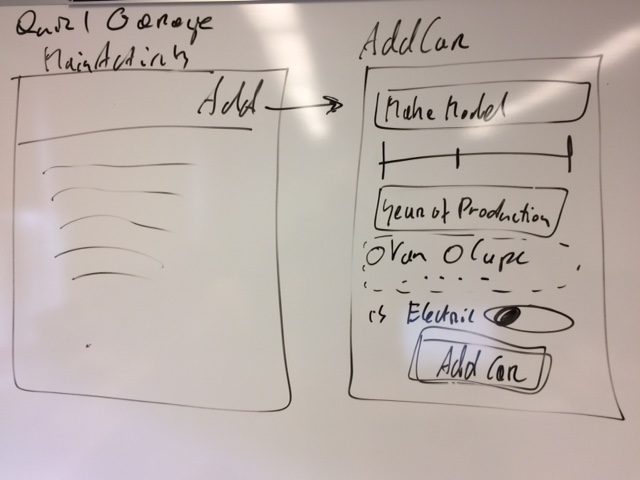 Garage
MainActivity
Add
AddCar
Make Model
Year of Production
O Van O Cupe
is Electric
Add Car